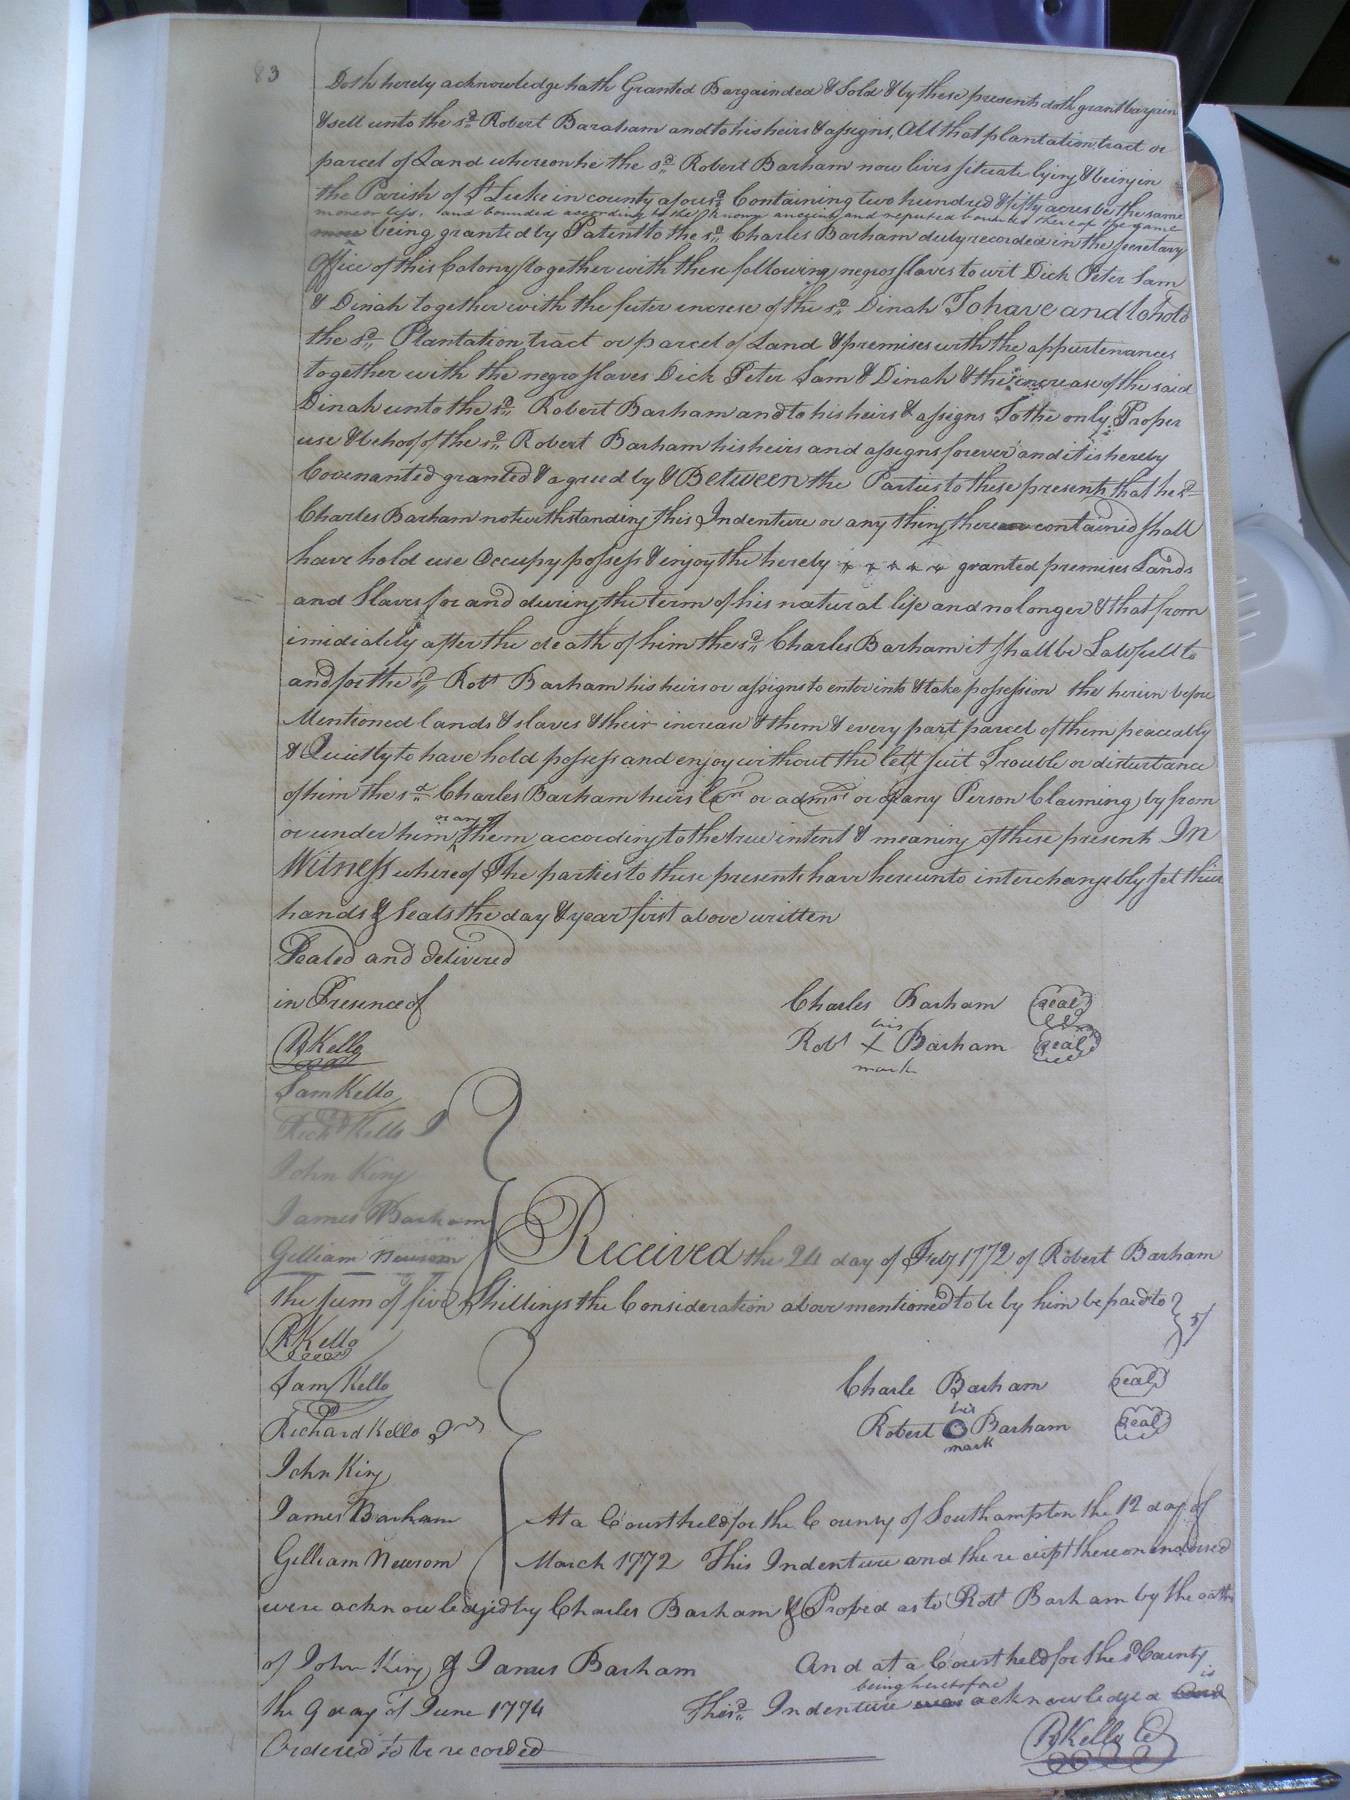 83
Doth hereby acknowledge hath Granted Bargainded & Sold & by these presents doth grant bargain
& sell unto the sd. Robert Baraham and to his heirs & assigns, All that plantation tract or
parcel of Land whereon he the sd. Robert Barham now lives situate lying & being in
the Parish of St Luke in county aforesd. Containing two hundred & fifty acres be the same
more or less, and bounded according to the known ancient and reputed bounds thereof the same
more being granted by Patent to the sd. Charles Barham duly recorded in the secretary
Office of this Colony together with these following negro slaves to wit Dick Peter Sam
& Dinah together with the futer increse of the sd. Dinah To have and to hold
the sd. Plantation tract or parcel of Land & premises with the appurtenances
together with the negro slaves Dick Peter Sam & Dinah & the increase of the said
Dinah unto the sd. Robert Barham and to his heirs & assigns To the only Proper
use & behoof of the sd. Robert Barham his heirs and assigns forever and it is hereby
Covenanted granted & agreed by & Between the Parties to these presents that he sd.
Charles Barham notwithstanding this Indenture or any thing therein contained shall
have hold use Occupy possess & enjoy the hereby granted premises Lands
and Slaves for and during the term of his natural life and no longer & that from
imidiately after the death of him the sd. Charles Barham it shall be Lawfull to
and for the sd. Robt Barham his heirs or assigns to enter into & take possession the herein before
Mentioned lands & slaves & their increase & them & every part parcel of them peaceably
& Quietly to have hold possess and enjoy without the lett suit Trouble or disturbance
of him the sd. Charles Barham heirs Exrs or admrs or of any Person Claiming by from
or any of
or under him them according to the true intent & meaning of these presents In
Witness whereof The parties to these presents have hereunto interchangebly set their
hands & Seals the day & year first above written
Sealed and delivered
in Presence of
Charles Barham seal
his
Robt X Barham seal
mark
R Kello
Sam Kello
Richd Kello J
John King
James Barham
Gilliam Newsom
Received the 24 day of Feby 1772 of Robert Barham
the sum of five Shillings the Consideration above mentioned to be by him be paid to 5/
R Kello
Sam Kello
Richard Kello Jnr
John King
James Barham
Gilliam Newsom
Charle Barham seal
his
Robert O Barham seal
mark
At a Court held for the County of Southampton the 12 day of
March 1772 This Indenture and the receipt thereon endorsed
were acknowledged by Charles Barham & Proved as to Robt Barham by the oaths
of John King & James Barham And at a Court held for the sd County
the 9 day of June 1774 This sd. Indenture was being heretofore acknowledged is
Ordered to be recorded
R Kello